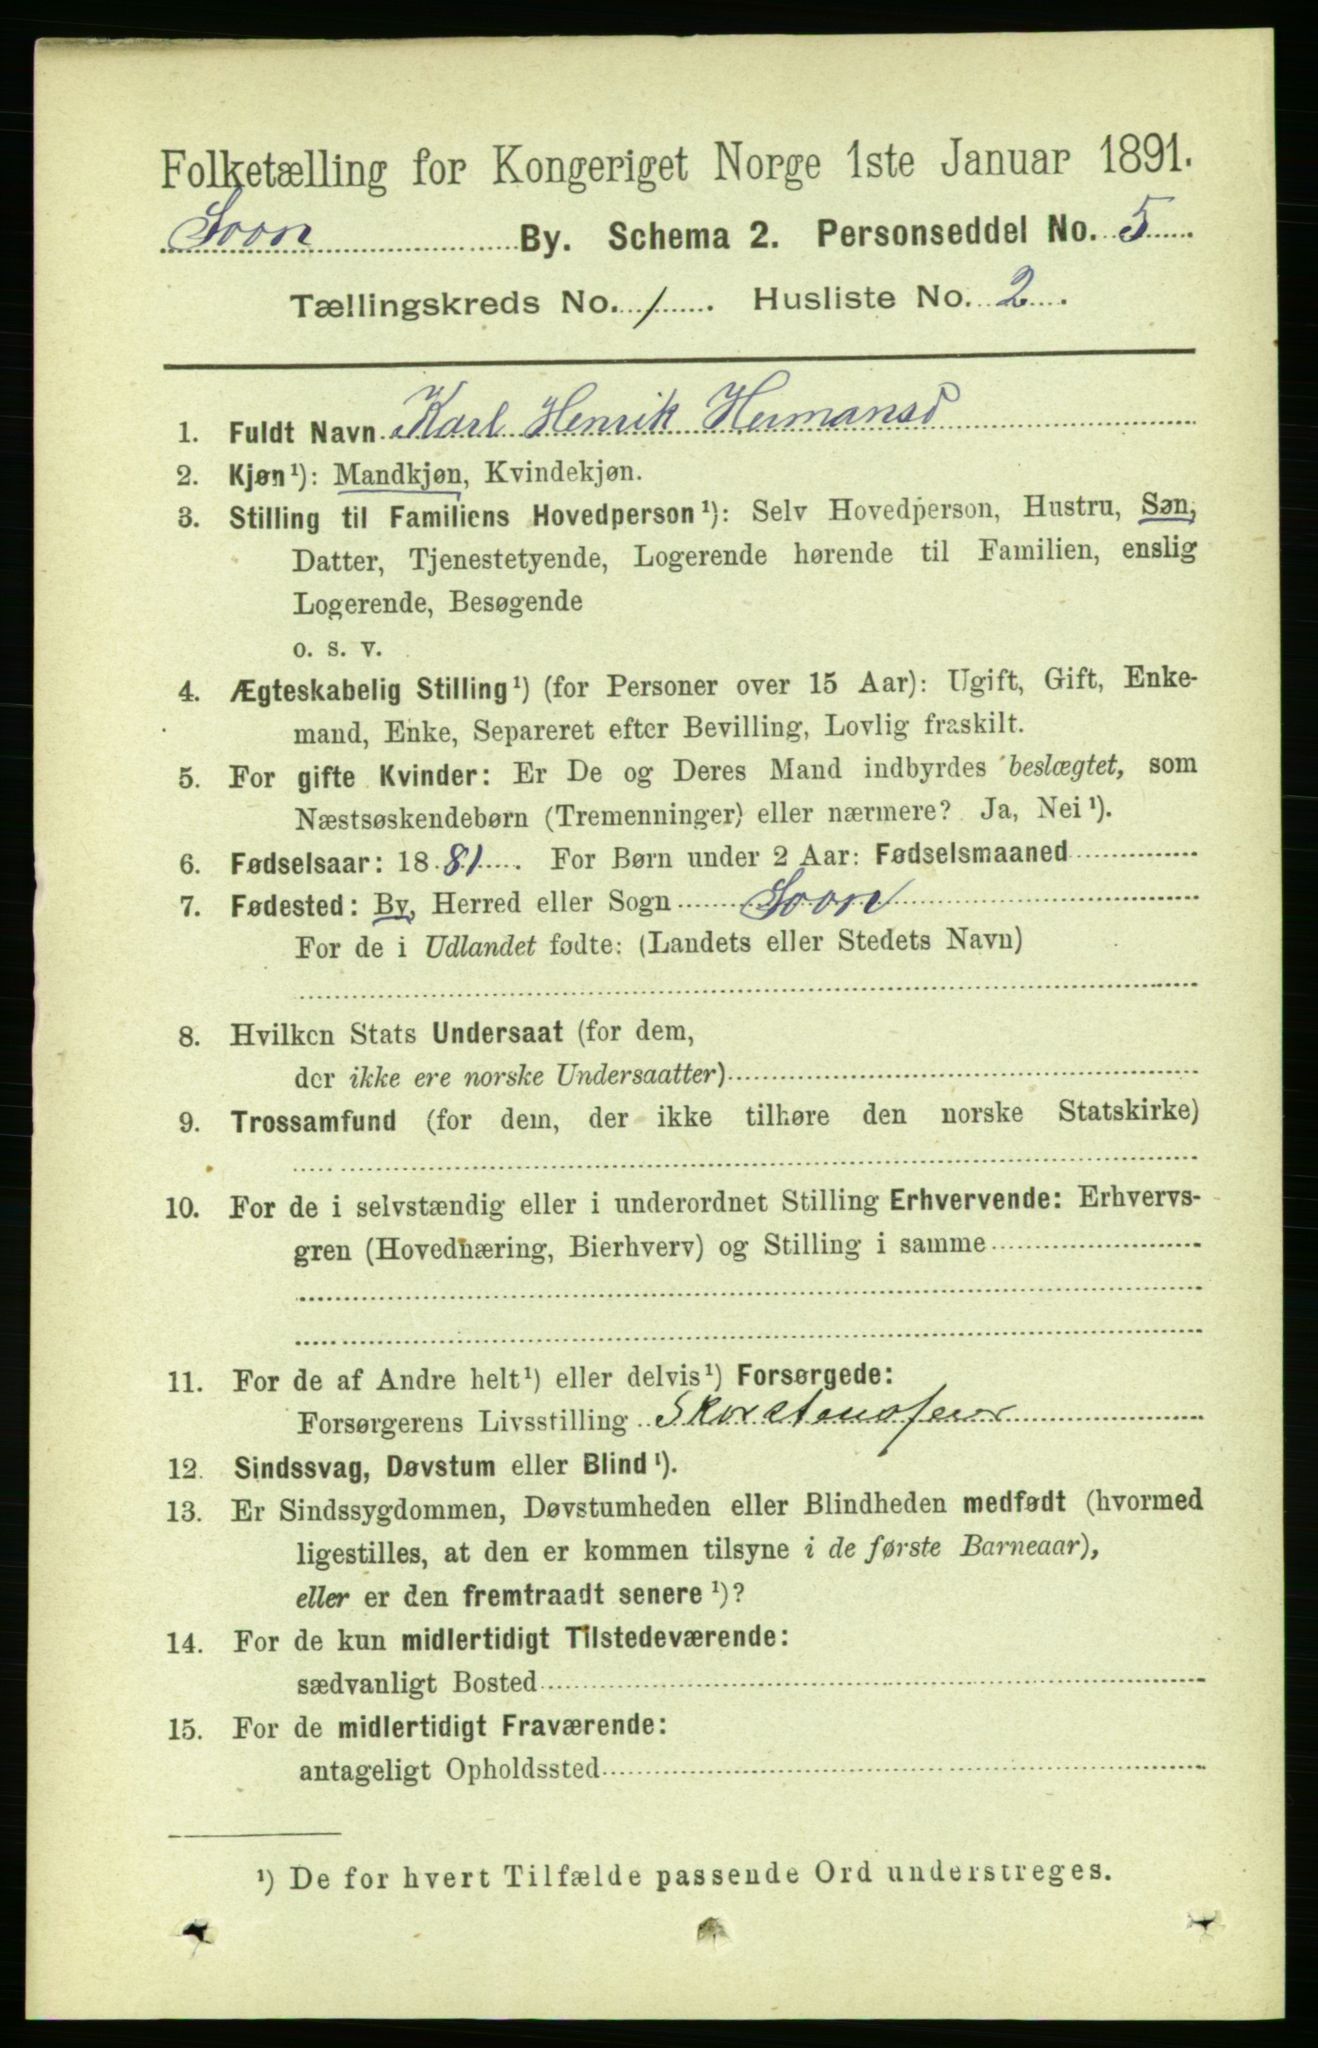 Folketælling for Kongeriget Norge 1ste Januar 1891.
Soon By. Schema 2. Personseddel No. 5
Tællingskreds No. 1. Husliste No. 2.
1. Fuldt Navn Karl Henrik Hermansd
2. Kjøn¹): Mandkjøn, Kvindekjøn.
3. Stilling til Familiens Hovedperson¹): Selv Hovedperson, Hustru, Søn,
Datter, Tjenestetyende, Logerende hørende til Familien, enslig
Logerende, Besøgende
o. s. v.
4. Ægteskabelig Stilling¹) (for Personer over 15 Aar): Ugift, Gift, Enke-
mand, Enke, Separeret efter Bevilling, Lovlig fraskilt.
5. For gifte Kvinder: Er De og Deres Mand indbyrdes beslægtet, som
Næstsøskendebørn (Tremenninger) eller nærmere? Ja, Nei¹).
6. Fødselsaar: 1881. For Børn under 2 Aar: Fødselsmaaned
7. Fødested: By, Herred eller Sogn Soon
For de i Udlandet fødte: (Landets eller Stedets Navn)
8. Hvilken Stats Undersaat (for dem,
der ikke ere norske Undersaatter)
9. Trossamfund (for dem, der ikke tilhøre den norske Statskirke)
10. For de i selvstændig eller i underordnet Stilling Erhvervende: Erhvervs-
gren (Hovednæring, Bierhverv) og Stilling i samme
11. For de af Andre helt¹) eller delvis¹) Forsørgede:
Forsørgerens Livsstilling Skorstensfeier
12. Sindssvag, Døvstum eller Blind¹).
13. Er Sindssygdommen, Døvstumheden eller Blindheden medfødt (hvormed
ligestilles, at den er kommen tilsyne i de første Barneaar),
eller er den fremtraadt senere¹)?
14. For de kun midlertidigt Tilstedeværende:
sædvanligt Bosted
15. For de midlertidigt Fraværende:
antageligt Opholdssted
¹) De for hvert Tilfælde passende Ord understreges.